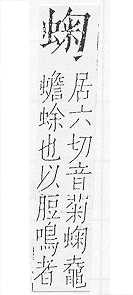 䗇
居六切音菊䗇鼀
蟾蜍也以脰鳴者